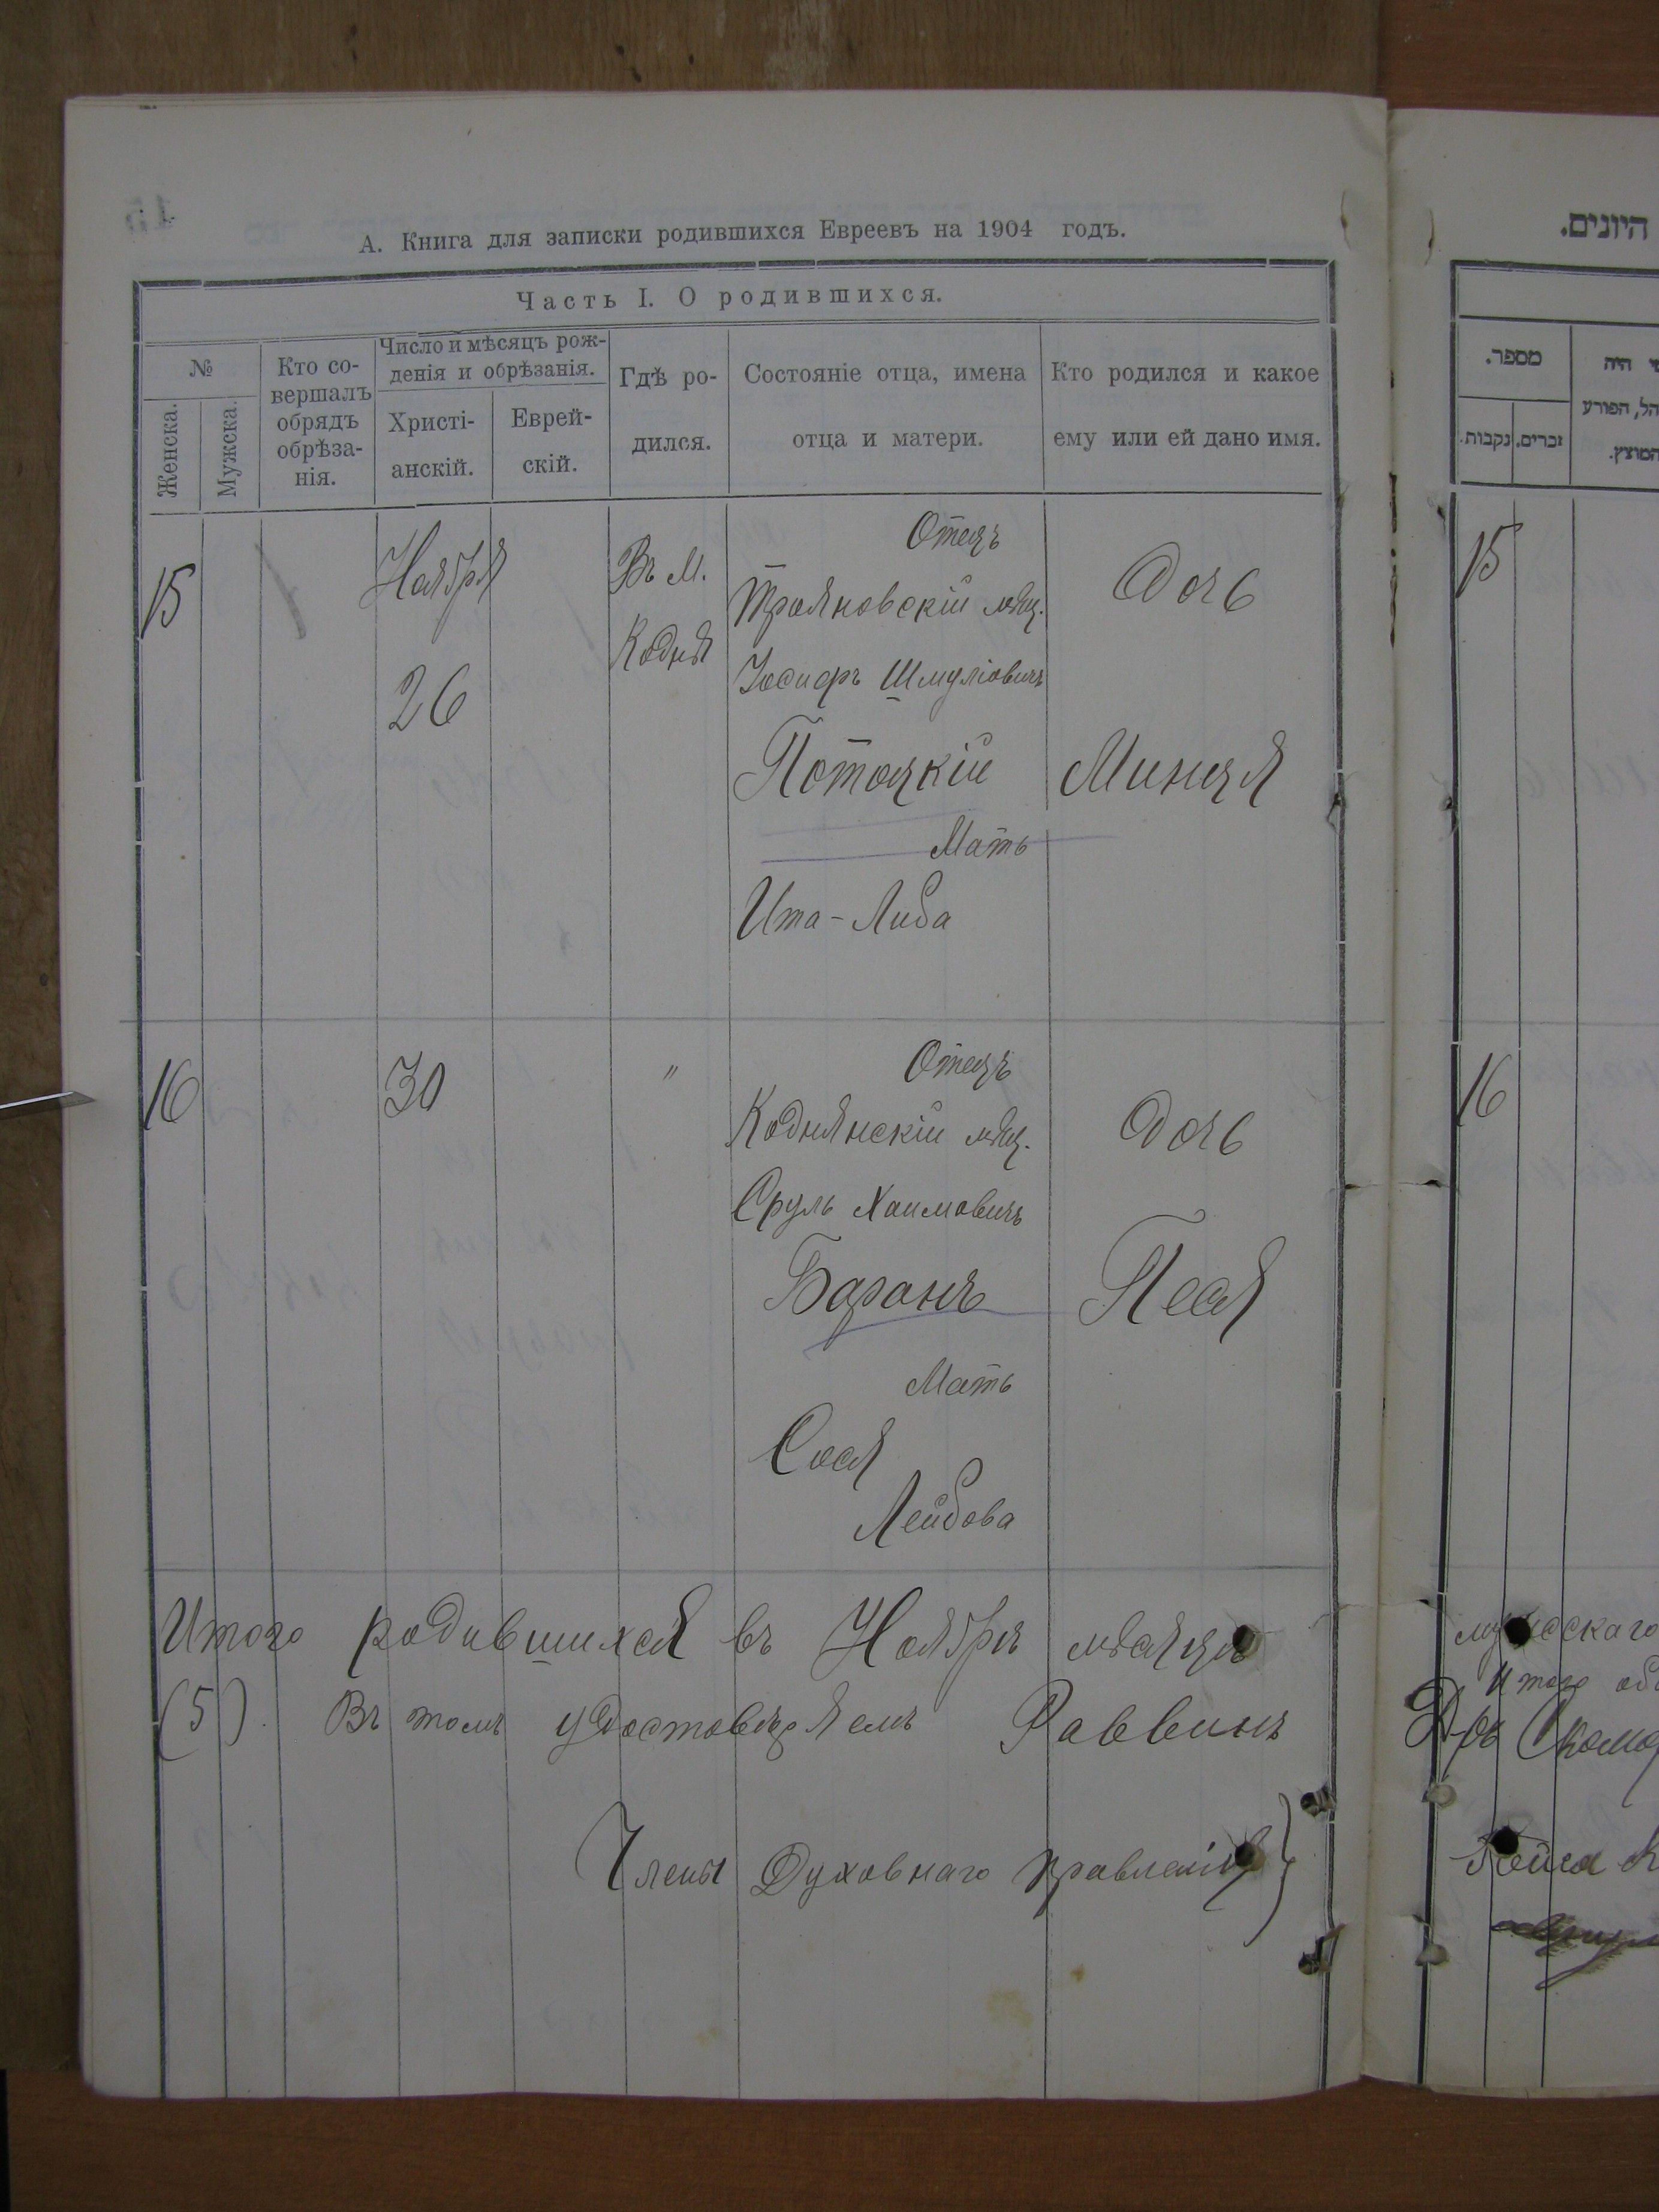 А. Книга для записки родившихся Евреевъ на 1904 годъ.
Часть I. О родившихся.
№
Женска.
Мужска.
Кто со-
вершалъ
обрядъ
обрѣза-
нія.
Число и мѣсяцъ рож-
денія и обрѣзанія.
Христі-
анскій.
Еврей-
скій.
Гдѣ ро-
дился.
Состояніе отца, имена
отца и матери.
Кто родился и какое
ему или ей дано имя.
15
Ноября
26
Въ м.
Кодня
Отецъ
Трояновскій мѣщ.
Іосифъ Шмуліовичъ
Потоцкій
Мать
Ита-Либа
Дочь
Минця
16
30
"
Отецъ
Коднянскій мѣщ.
Сруль Хаимовичъ
Баранъ
Мать
Сося
Лейбова
Дочь
Песя
Итого родившихся въ Ноябрѣ мѣсяцѣ
(5). Въ томъ удостовѣряемъ Раввинъ
Члены Духовнаго правленія }
היונים.
מספר.
זכרים.
נקבות.
הל, הפורע
המוצץ.
15
16
Итого
Д-ръ